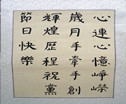 心連心憶崢嶸
歲月手牽手創
輝煌歷程祝黨
節日快樂